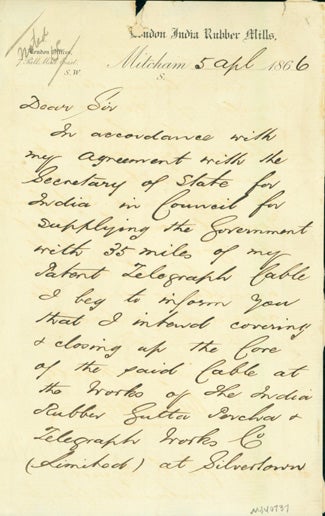 London India Rubber Mills,
London Offices,
7 Pall Mall East.
S.W.
Mitcham 5 apl 1866
S.
Dear Sir
In accordance with
my Agreement with the
Secretary of State for
India in Council for
supplying the Government
with 35 miles of my
Patent Telegraph Cable
I beg to inform you
that I intend covering
& closing up the Core
of the said Cable at
the Works of The India
Rubber Gutta Percha &
Telegraph Works Co
(Limited) at Silvertown